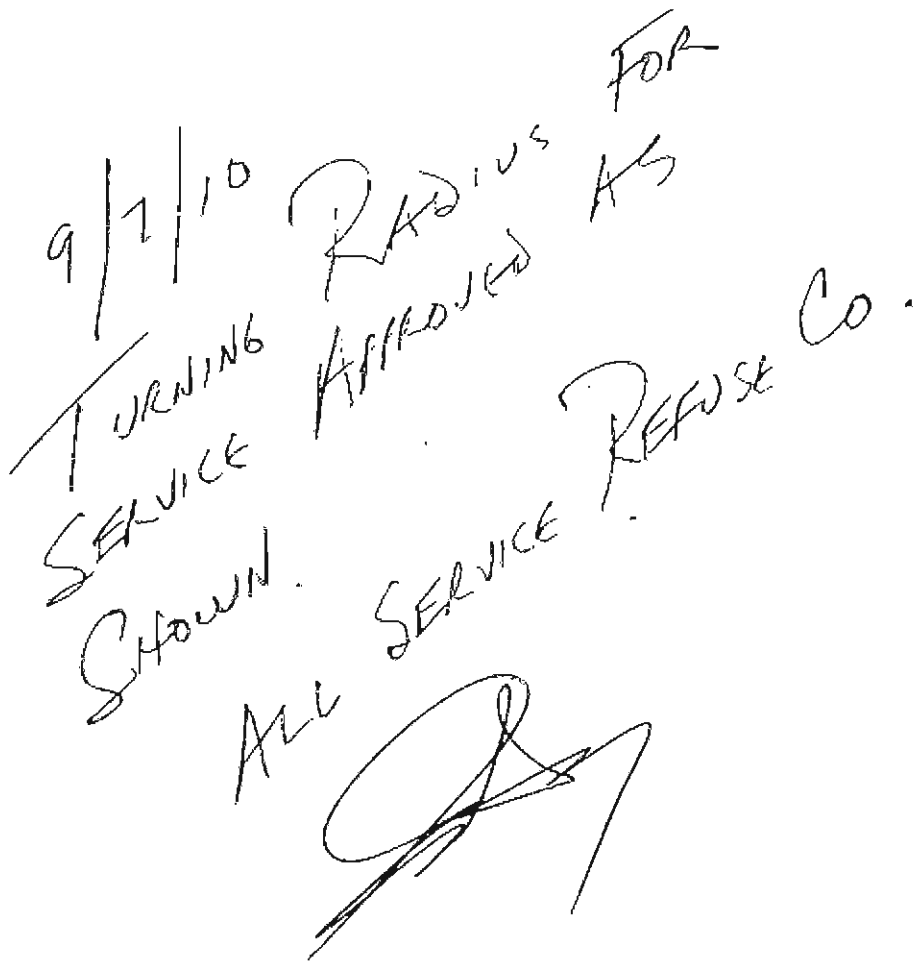 9/7/10
TURNING RADIUS FOR
SERVICE APPROVED AS
SHOWN.
ALL SERVICE REFUSE CO.